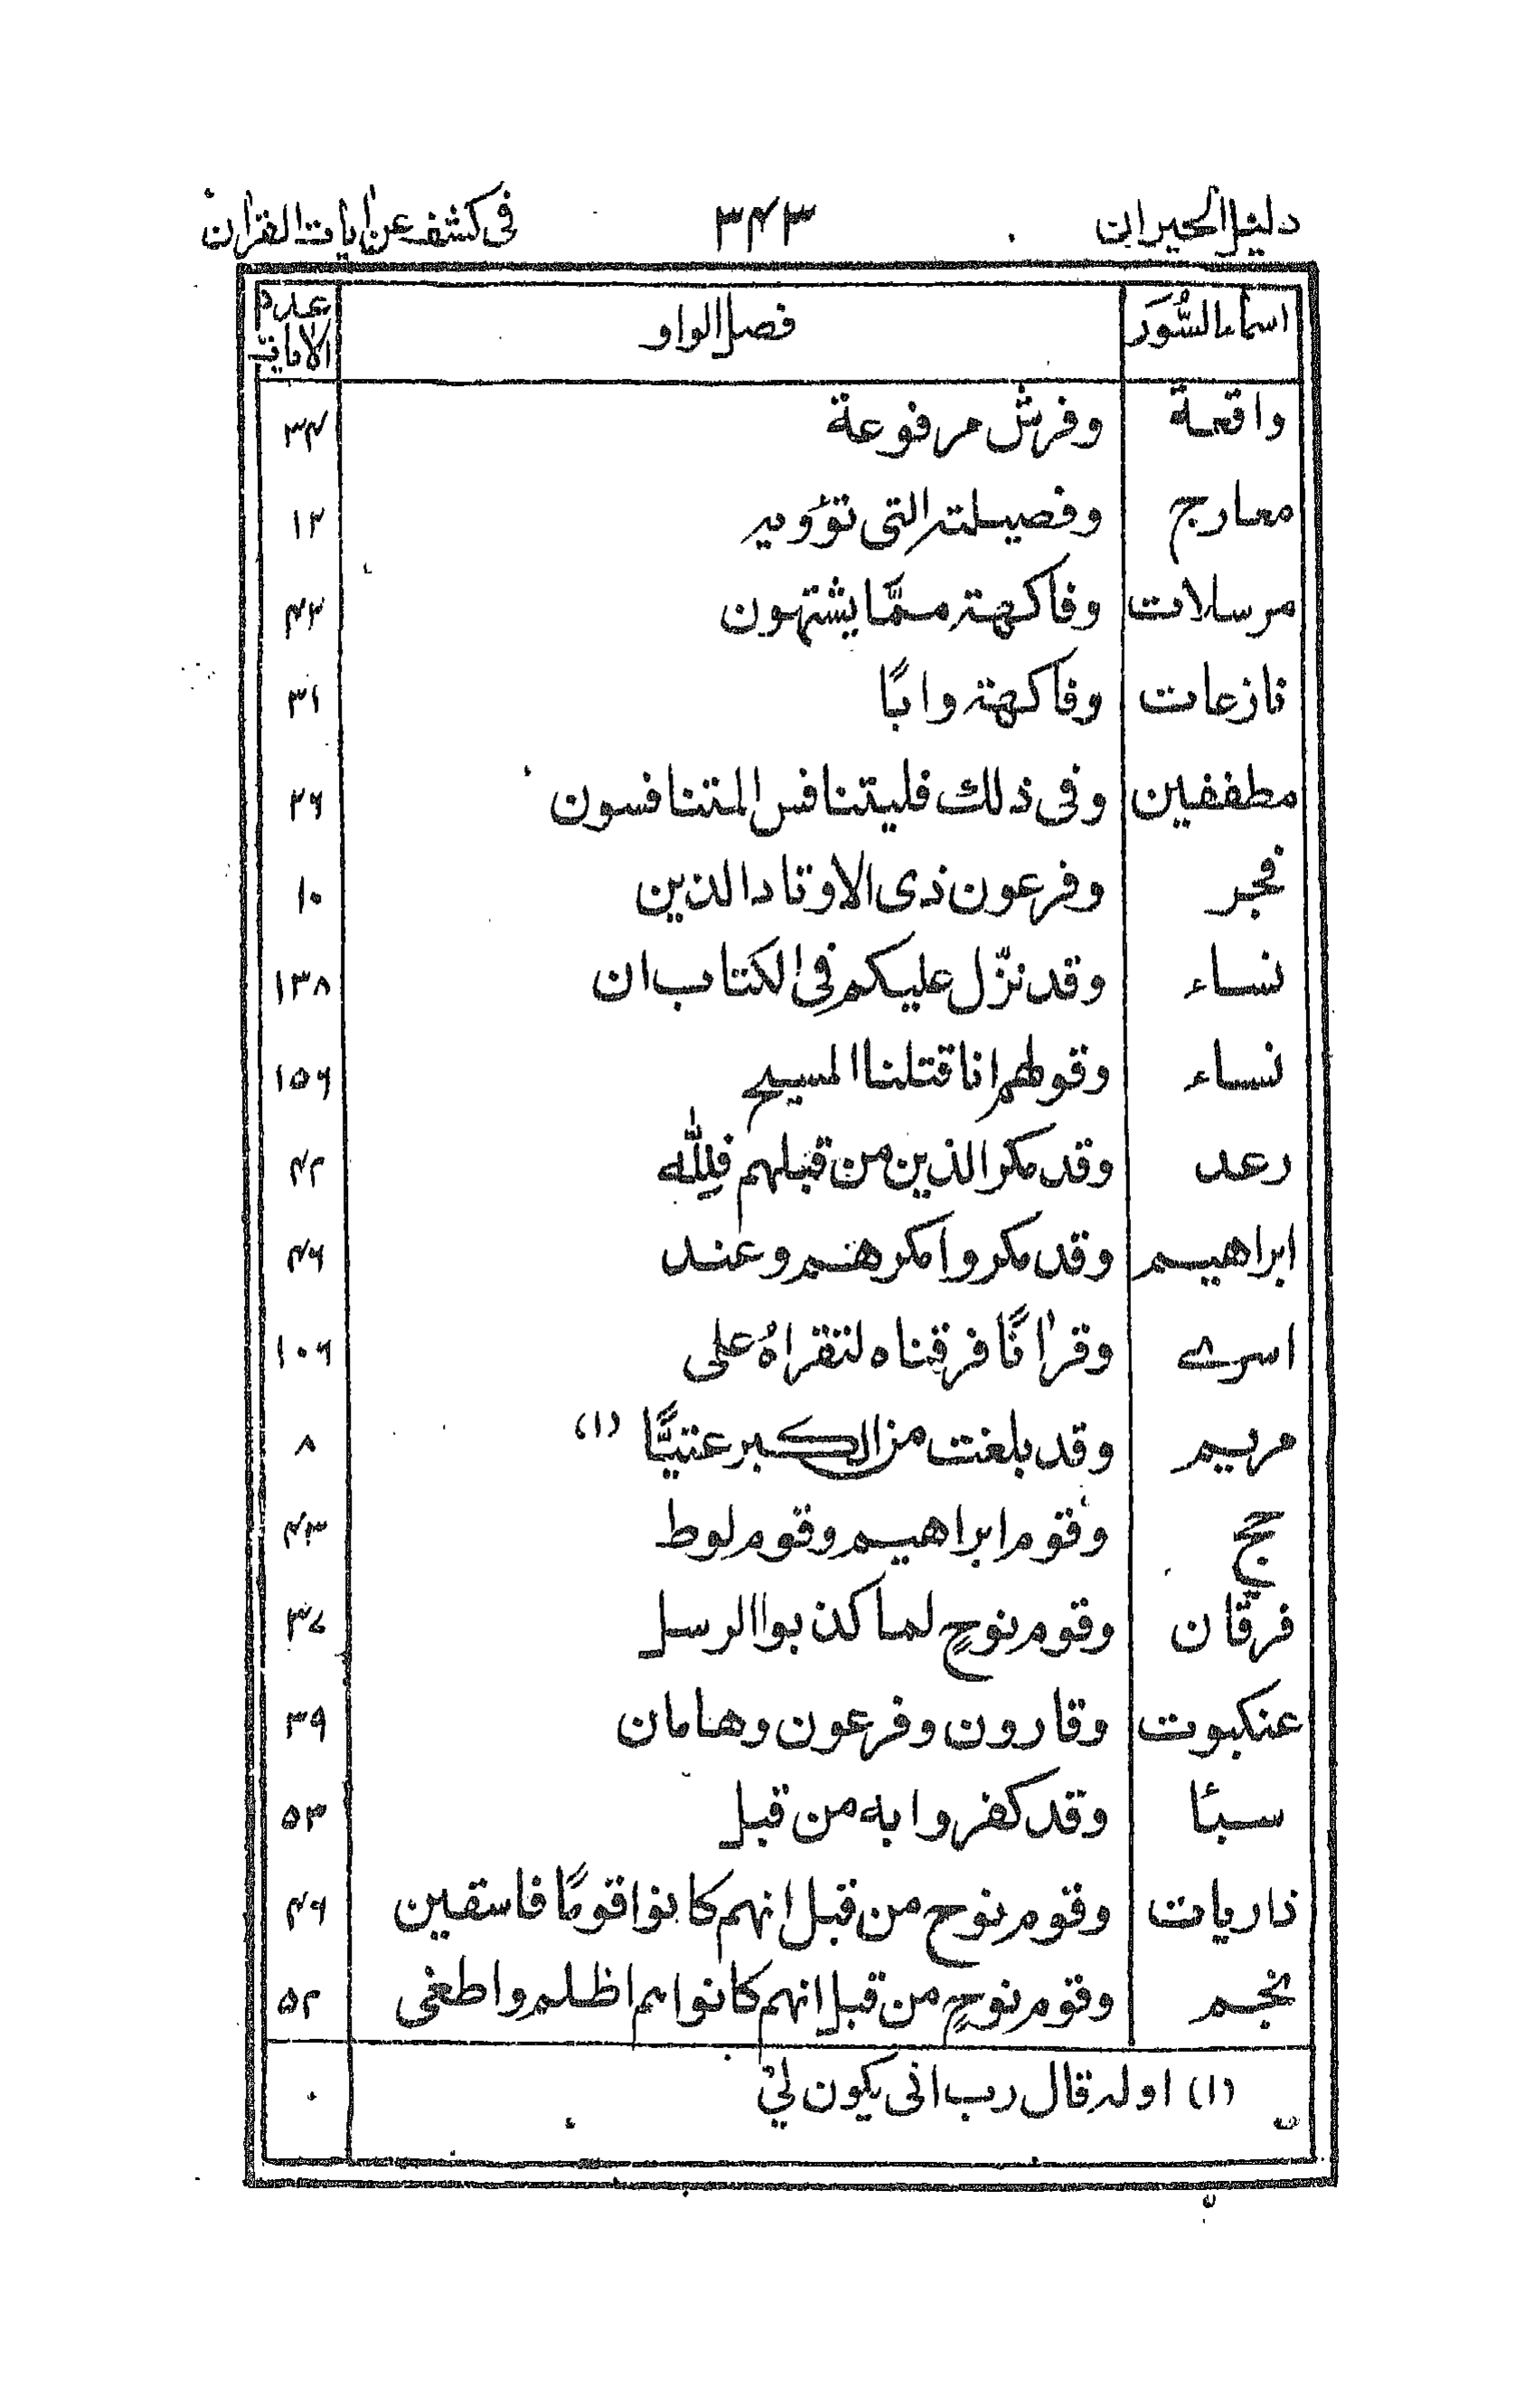 دليل الحيران ٣٤٣ فى كشف عن ايات القران
اسماء السُّوَر فصل الواو عدد الايات
واقعة وفرش مرفوعة ٣٤
معارج وفصيلته التى تؤويه ١٣
مرسلات وفاكهة ممَّا يشتهون ٤٢
نازعات وفاكهة وابًّا ٣١
مطففين وفى ذلك فليتنافس المتنافسون ٢٦
فجر وفرعون ذى الاوتاد الذين ١٠
نساء وقد نزّل عليكم فى الكتاب ان ١٣٨
نساء وقولهم انا قتلنا المسيح ١٥٦
رعد وقد مكر الذين من قبلهم فلِلّٰه ٤٢
ابراهيم وقد مكروا مكرهم وعند ٤٦
اسرے وقراٰنًا فرقناه لتقراهُ على ١٠٦
مريم وقد بلغت من الكبر عتيًّا (١) ٨
حج وقوم ابراهيم وقوم لوط ٤٣
فرقان وقوم نوحٍ لما كذبوا الرسل ٣٧
عنكبوت وقارون وفرعون وهامان ٣٩
سبئا وقد كفروا به من قبل ٥٣
ذاريات وقوم نوح من قبل انهم كانوا قومًا فاسقين ٤٦
نجم وقوم نوحٍ من قبل انهم كانوا هم اظلم واطغى ٥٢
(١) اوله قال رب انى يكون لى ٠